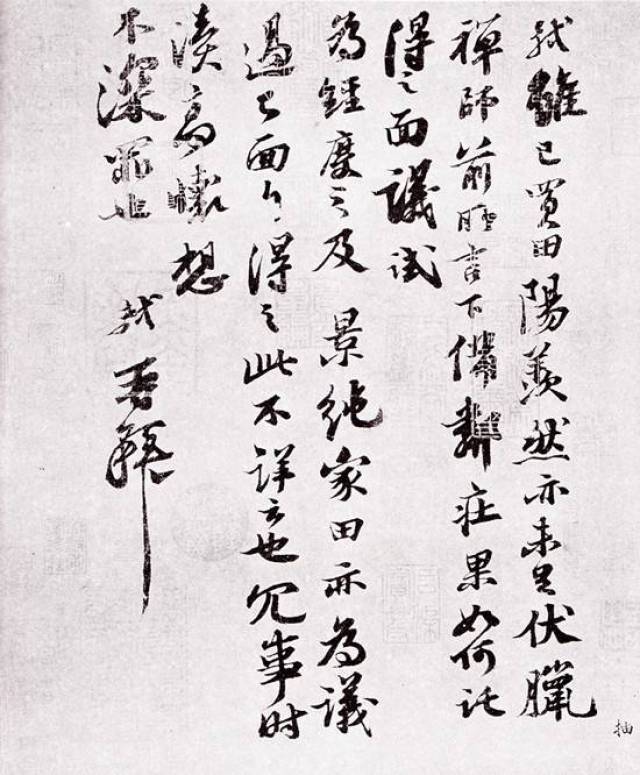 軾雖已買田陽羨然亦未足伏臘
禪師前所言下備鄰莊果如何託
得之面議試
為經度之及 景純家田亦為議
過已面白得之此不詳云也冗事時
瀆高懷想
不深罪也 軾再拜
抽